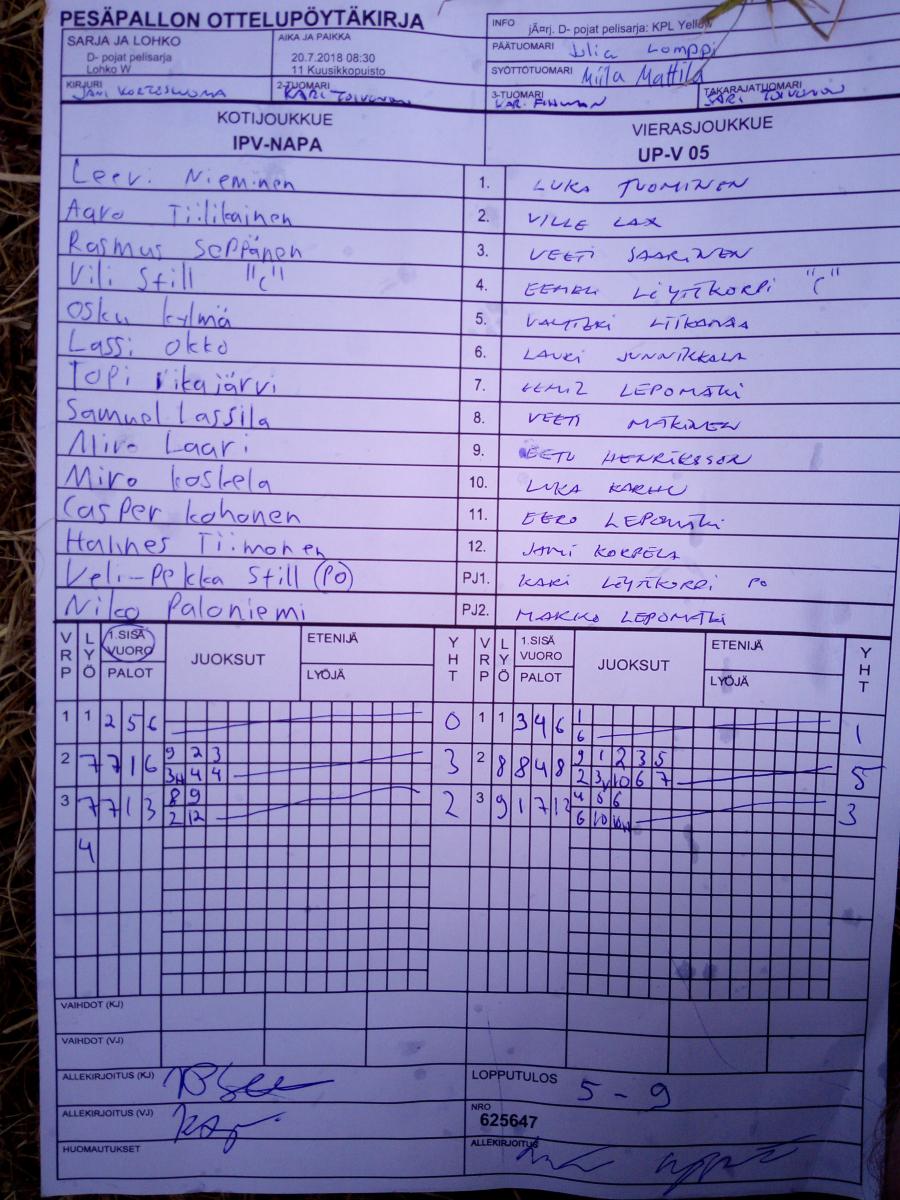 PESÄPALLON OTTELUPÖYTÄKIRJA
INFO jÃ¤rj. D- pojat pelisarja: KPL Yellow
SARJA JA LOHKO
D- pojat pelisarja
Lohko W
AIKA JA PAIKKA
20.7.2018 08:30
11 Kuusikkopuisto
PÄÄTUOMARI Julia Lomppi
SYÖTTÖTUOMARI Miila Mattila
KIRJURI
JANI KORTESLUOMA
2-TUOMARI
KARI TOIVONEN
3-TUOMARI
TAKARAJATUOMARI
SARI TOIVONEN
KOTIJOUKKUE
IPV-NAPA
VIERASJOUKKUE
UP-V 05
Leevi Nieminen 1. LUKA TUOMINEN
Aaro Tiilikainen 2. VILLE LAX
Rasmus Seppänen 3. VEETI SAARINEN
Vili Still "C" 4. EEMELI LÖYTTKORPI "C"
Osku kylmä 5. VALTTERI LIIKAMAA
Lassi Okko 6. LAURI JUNNIKKALA
Topi rikajärvi 7. LEPOMÄKI
Samuel Lassila 8. VEETI MÄKINEN
Miro Laari 9. EETU HENRIKSSON
Miro koskela 10. LUKA KARHU
Casper kohonen 11. EERO LEPOMÄKI
Hannes Tiimonen 12. JAMI KORPELA
Veli-Pekka Still (PO) PJ1. KARI LÖYTTKORPI PO
Niko Paloniemi PJ2. MARKO LEPOMÄKI
VRP LYÖ 1.SISÄ VUORO PALOT JUOKSUT ETENIJÄ LYÖJÄ YHT VRP LYÖ 1.SISÄ VUORO PALOT JUOKSUT ETENIJÄ LYÖJÄ YHT
1 1 2 5 6 0 1 1 3 4 6 1 1
6
2 7 7 1 6 9 2 3 3 2 8 8 4 8 9 1 2 3 5 5
3H 4 4 2 3 10 6 7
3 7 7 1 3 8 9 2 3 9 1 7 12 4 5 6 3
2 12 6 10
4
VAIHDOT (KJ)
VAIHDOT (VJ)
ALLEKIRJOITUS (KJ)
LOPPUTULOS 5 - 9
ALLEKIRJOITUS (VJ)
NRO
625647
HUOMAUTUKSET
ALLEKIRJOITUS